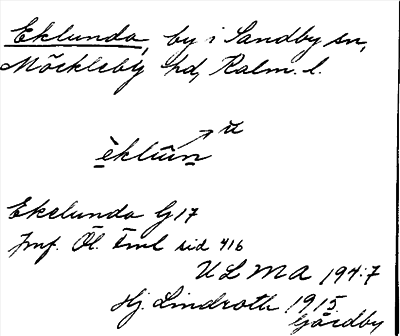 Eklunda, by i Sandby sn,
Möckleby hd, Kalm. l.
u
èklūn
Ekelunda G 17
Jmf. Öl. Eml sid 416
ULMA 194:7
Hj. Lindroth 1915
Gårdby